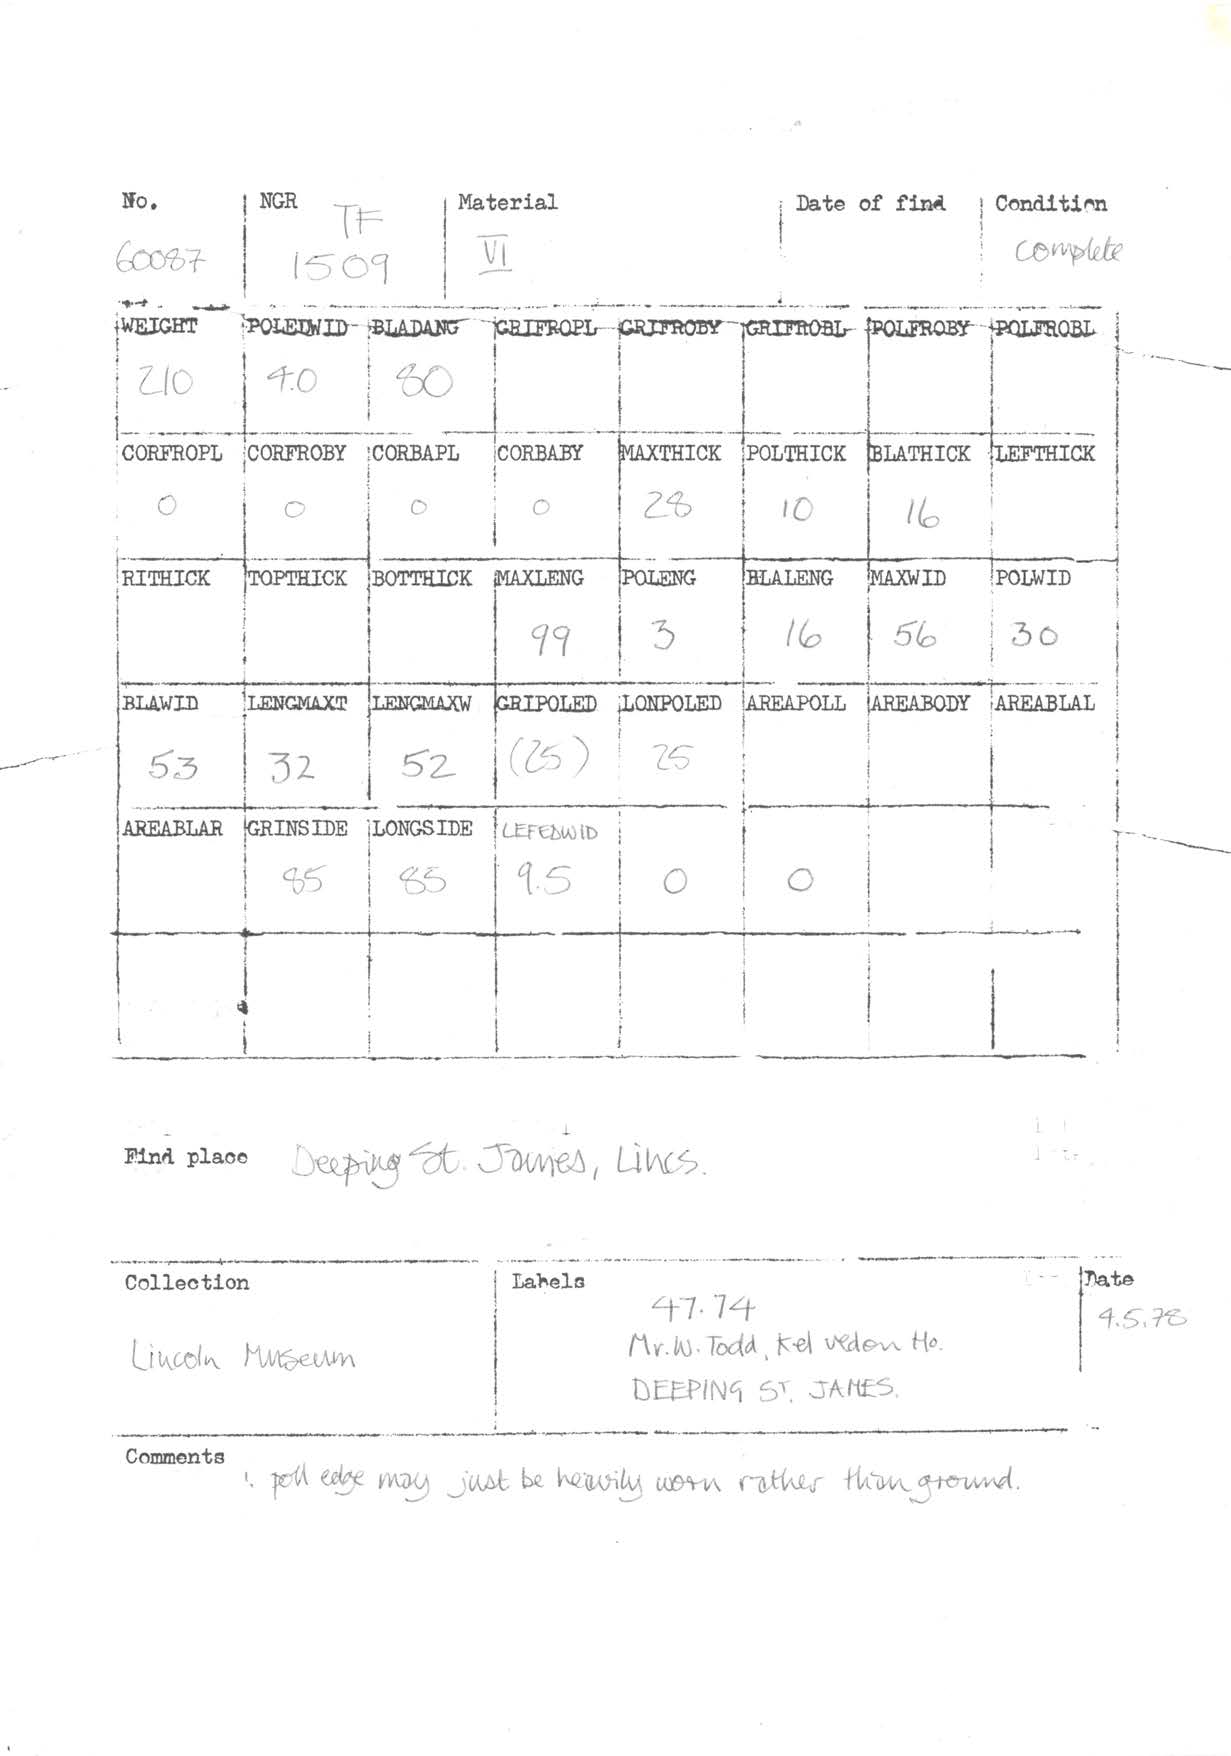 No. NGR Material Date of find Condition
60087 TF 1509 VI complete
WEIGHT POLEDWID BLADANG GRIFROPL GRIFROBY GRIFROBL POLFROBY POLFROBL
210 4.0 80
CORFROPL CORFROBY CORBAPL CORBABY MAXTHICK POLTHICK BLATHICK LEFTHICK
0 0 0 0 28 10 16
RITHICK TOPTHICK BOTTHICK MAXLENG POLENG BLALENG MAXWID POLWID
99 3 16 56 30
BLAWID LENGMAXT LENGMAXW GRIPOLED LONPOLED AREAPOLL AREABODY AREABLAL
53 32 52 (25) 25
AREABLAR GRINSIDE LONGSIDE LEFEDWID
85 85 9.5 0 0
Find place Deeping St. James, Lincs.
Collection Labels Date
47.74 4.5.78
Lincoln Museum Mr. W. Todd, Kelvedon Ho.
DEEPING ST. JAMES.
Comments
poll edge may just be heavily worn rather than ground.